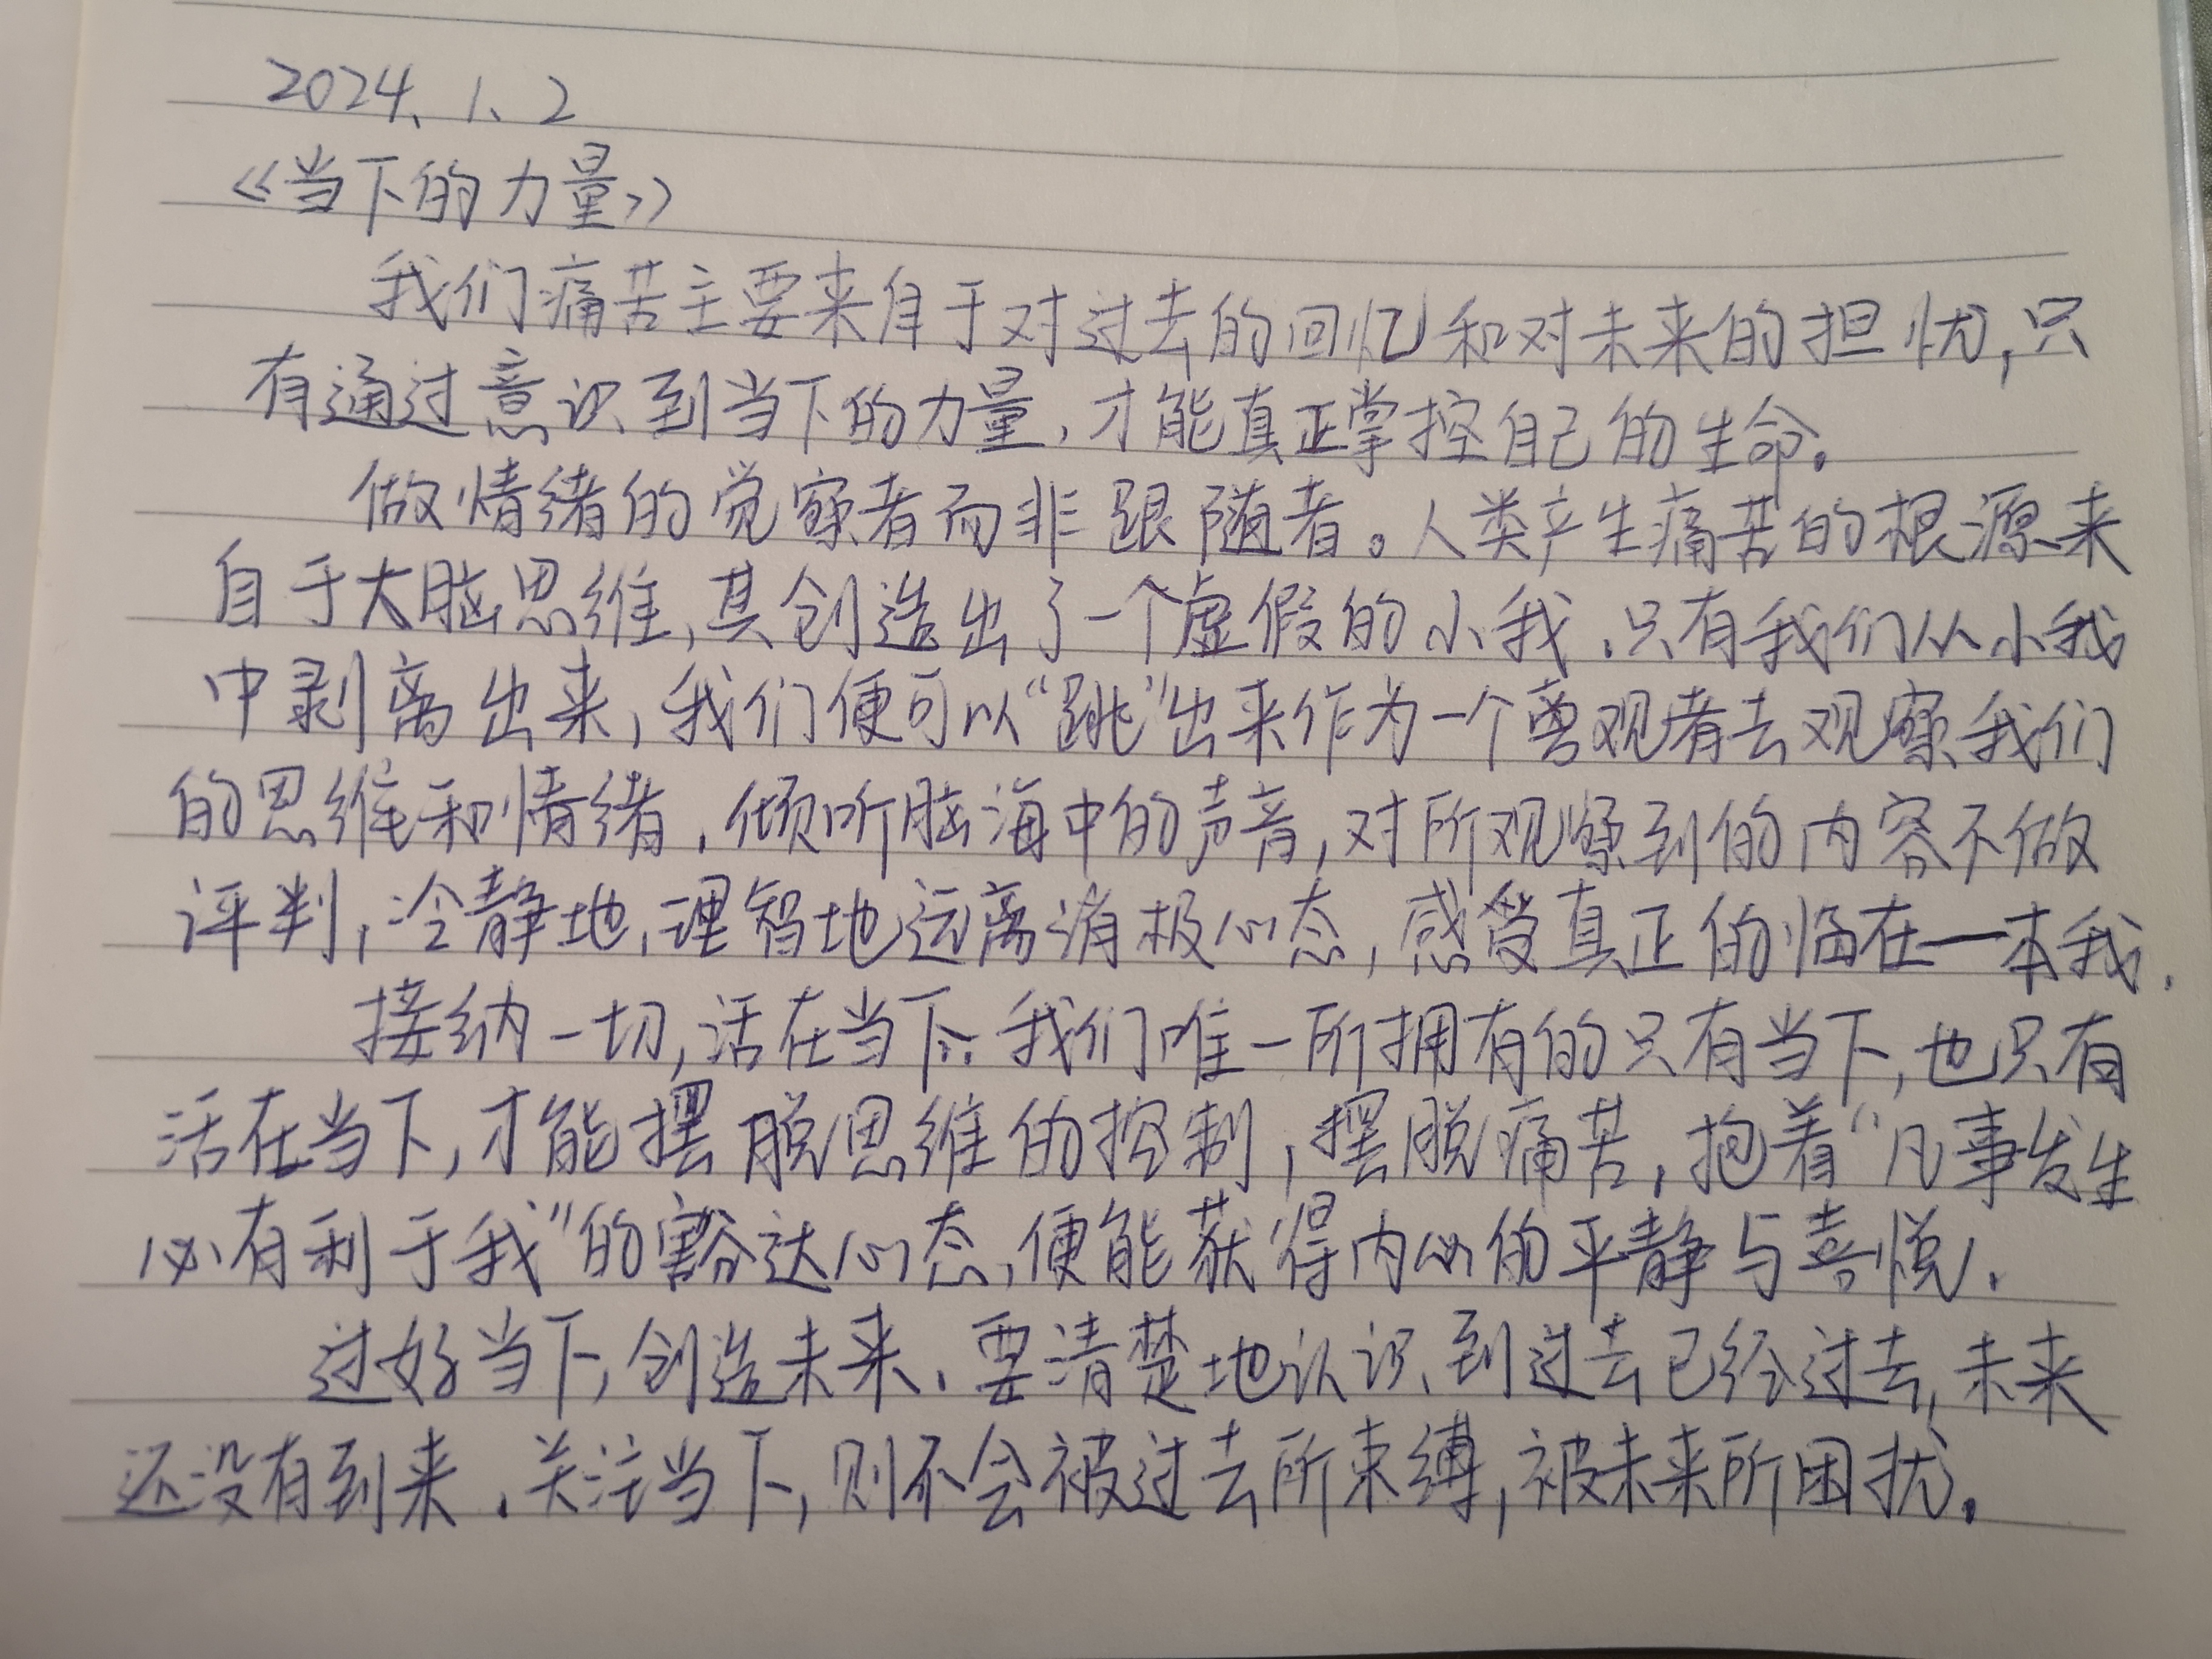 2024.1.2
《当下的力量》
我们痛苦主要来自于对过去的回忆和对未来的担忧,只
有通过意识到当下的力量,才能真正掌控自己的生命。
做情绪的觉察者而非跟随者。人类产生痛苦的根源来
自于大脑思维,其创造出了一个虚假的小我.只有我们从小我
中剥离出来,我们便可以“跳”出来作为一个旁观者去观察我们
的思维和情绪.倾听脑海中的声音,对所观察到的内容不做
评判,冷静地、理智地远离消极心态,感受真正的临在—本我.
接纳一切,活在当下.我们唯一所拥有的只有当下,也只有
活在当下,才能摆脱思维的控制,摆脱痛苦,抱着“凡事发生
必有利于我”的豁达心态,便能获得内心的平静与喜悦.
过好当下,创造未来.要清楚地认识到过去已经过去,未来
还没有到来.关注当下,则不会被过去所束缚,被未来所困扰.